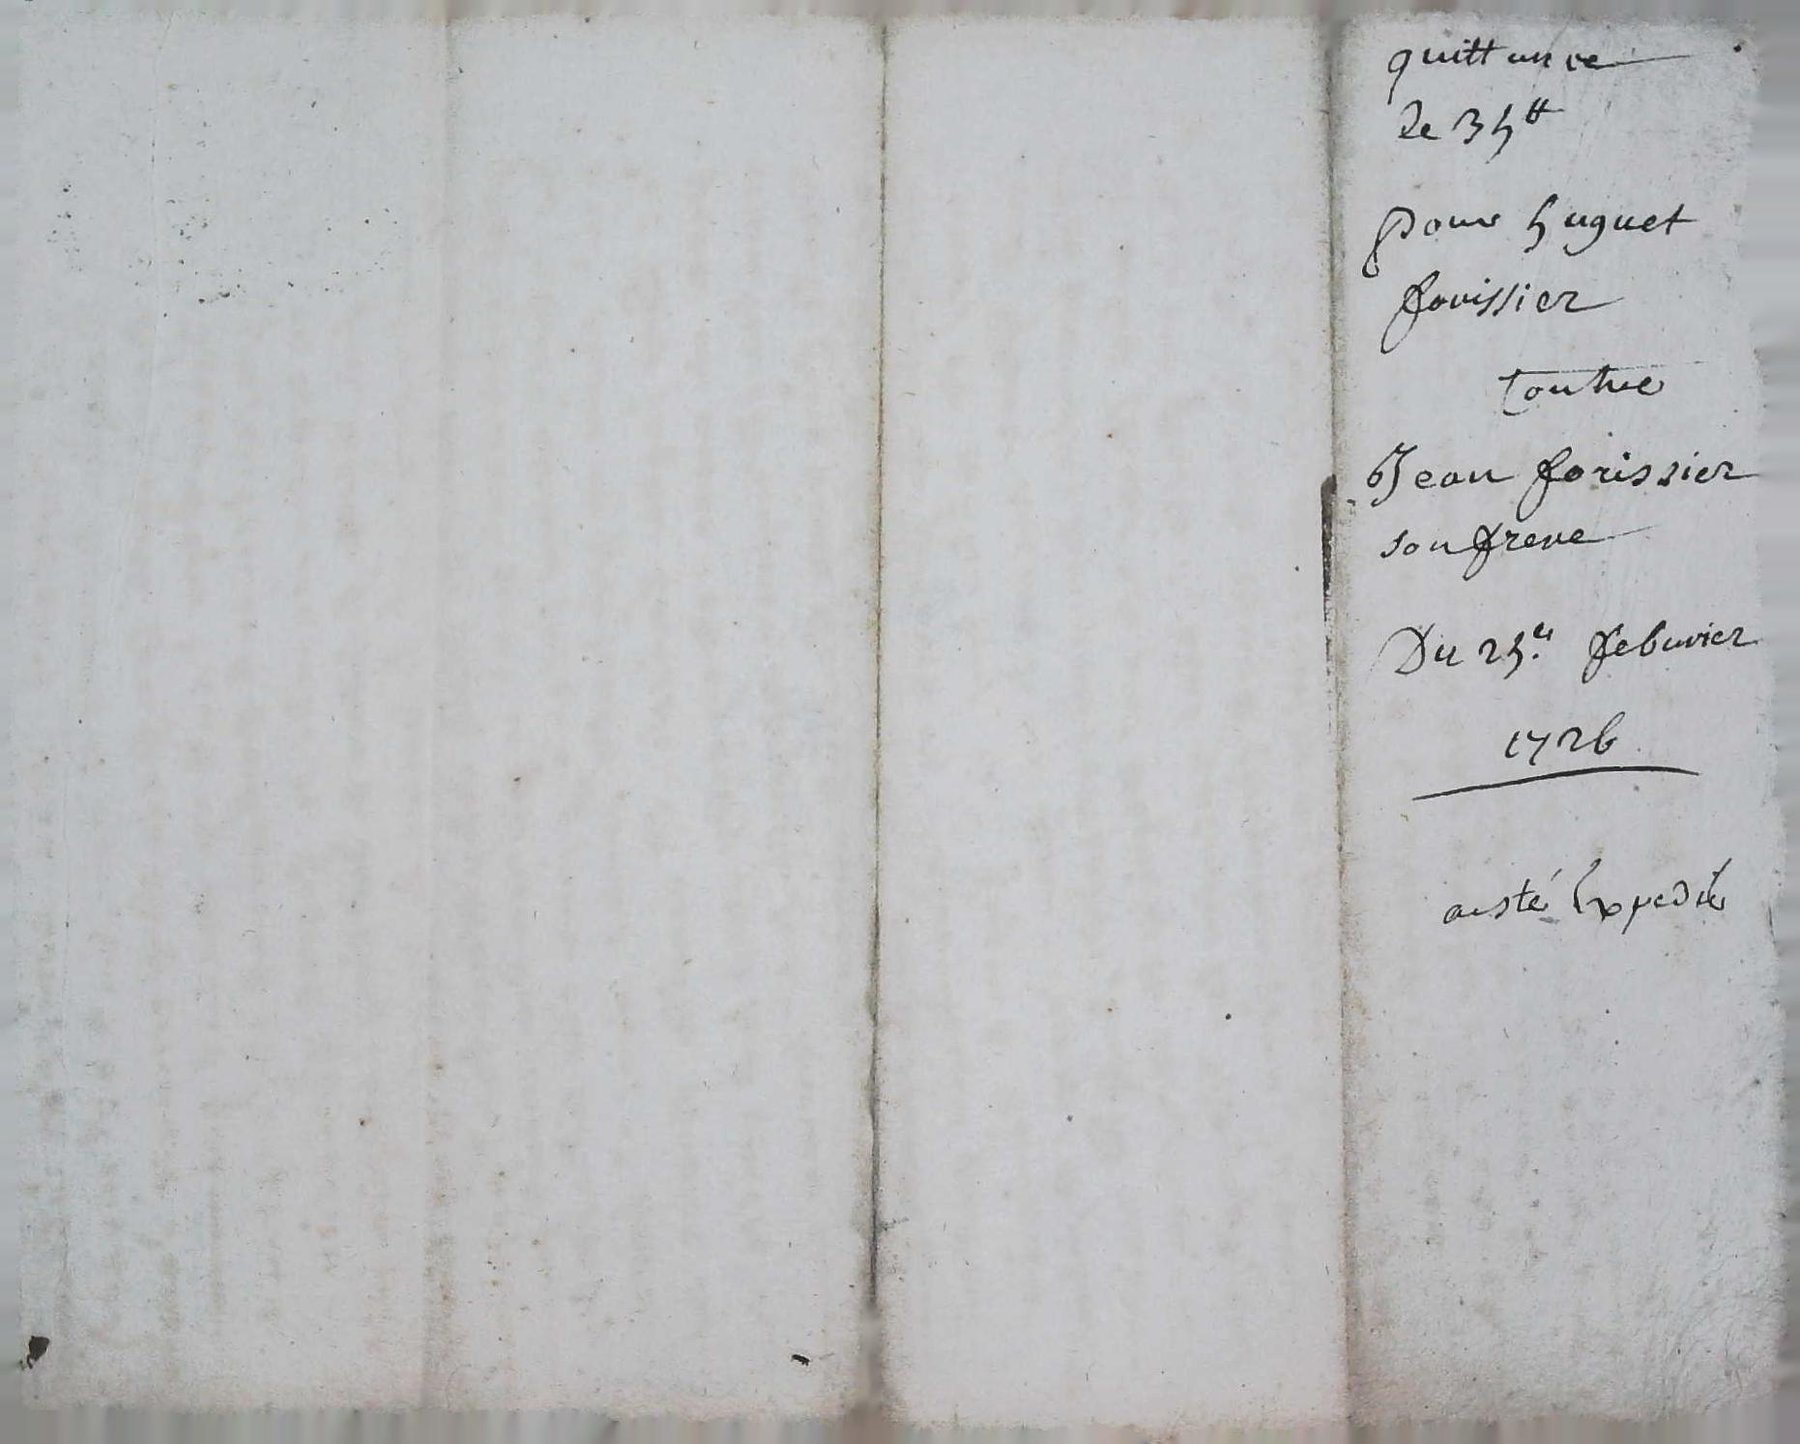 quittance
de 35tt
pour huguet
forissier
Contre
Jean forissier
son frere
Du 25.e feburier
1726
a esté Expedié